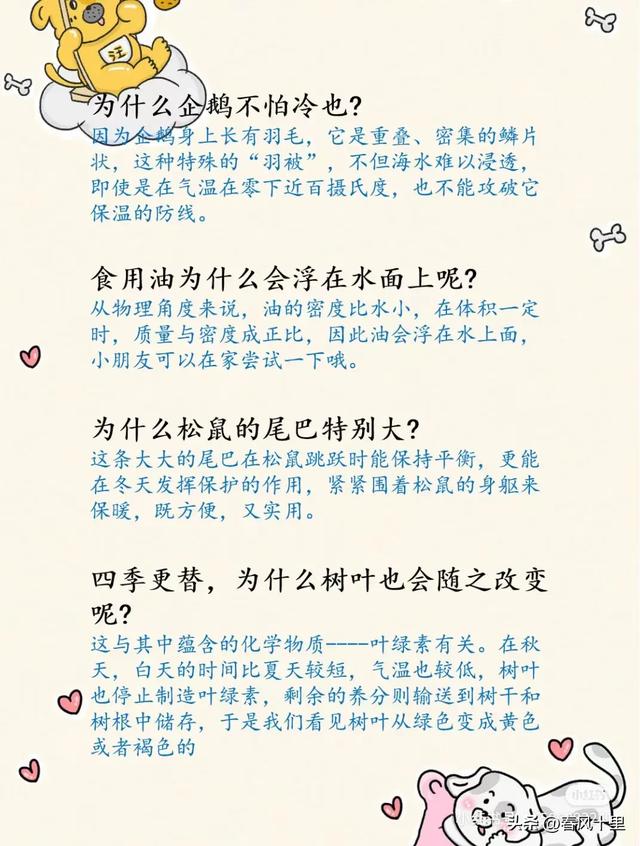 汪
为什么企鹅不怕冷也?
因为企鹅身上长有羽毛，它是重叠、密集的鳞片
状，这种特殊的“羽被”，不但海水难以浸透，
即使是在气温在零下近百摄氏度，也不能攻破它
保温的防线。
食用油为什么会浮在水面上呢?
从物理角度来说，油的密度比水小，在体积一定
时，质量与密度成正比，因此油会浮在水上面，
小朋友可以在家尝试一下哦。
为什么松鼠的尾巴特别大?
这条大大的尾巴在松鼠跳跃时能保持平衡，更能
在冬天发挥保护的作用，紧紧围着松鼠的身躯来
保暖，既方便，又实用。
四季更替，为什么树叶也会随之改变
呢?
这与其中蕴含的化学物质----叶绿素有关。在秋
天，白天的时间比夏天较短，气温也较低，树叶
也停止制造叶绿素，剩余的养分则输送到树干和
树根中储存，于是我们看见树叶从绿色变成黄色
或者褐色的
小红书
头条@春风十里